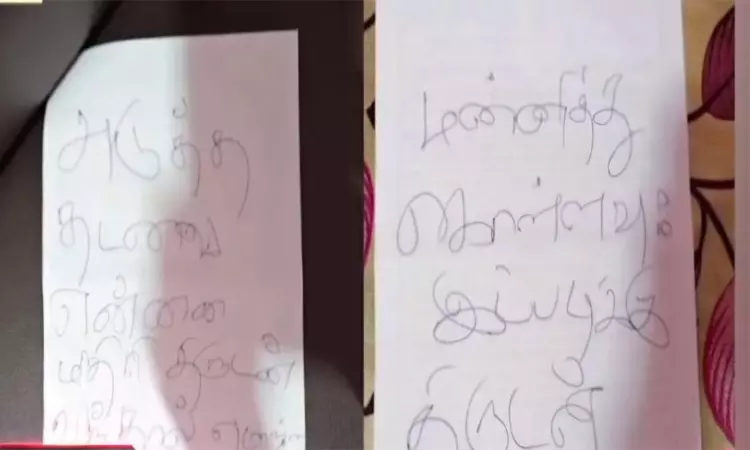 அடுத்த
தடவை
என்னை
மாதிரி திருடன்
வந்தால்
மன்னித்து
கொள்ளவும்
இப்படிக்கு
திருடன்